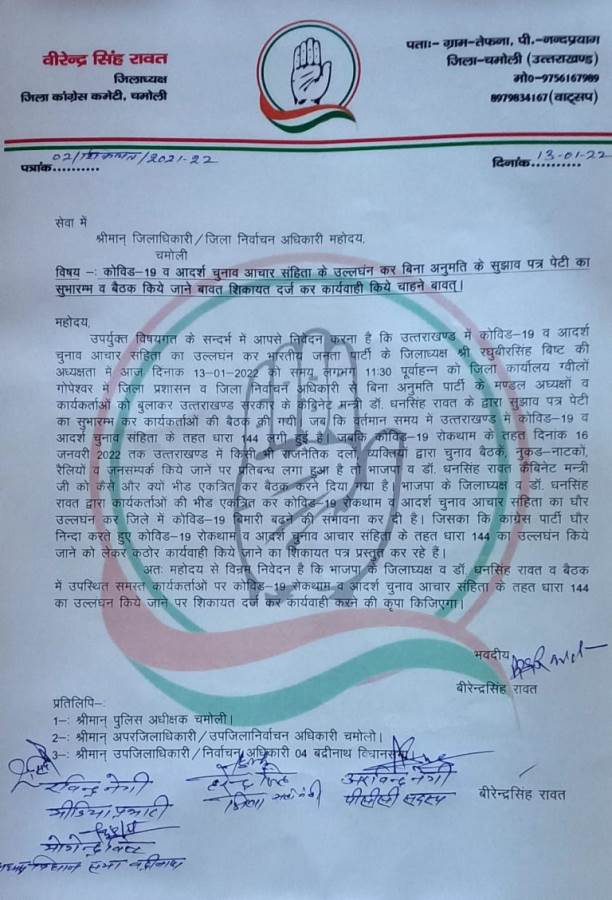 वीरेन्द्र सिंह रावत
जिलाध्यक्ष
जिला कांग्रेस कमेटी, चमोली
पताः- ग्राम-तेफना, पी.-नन्दप्रयाग
जिला-चमोली (उत्तराखण्ड)
मो०-9756167989
8979834167(वाट्सप)
पत्रांक.......... 02/शिकायत/2021-22
दिनांक.......... 13-01-22
सेवा में
श्रीमान् जिलाधिकारी/जिला निर्वाचन अधिकारी महोदय,
चमोली
विषय -: कोविड-19 व आदर्श चुनाव आचार संहिता के उल्लघंन कर बिना अनुमति के सुझाव पत्र पेटी का
सुभारम्भ व बैठक किये जाने बावत शिकायत दर्ज कर कार्यवाही किये चाहने बावत्।
महोदय,
उपर्युक्त विषयगत के सन्दर्भ में आपसे निवेदन करना है कि उत्तराखण्ड में कोविड-19 व आदर्श
चुनाव आचार संहिता का उल्लघंन कर भारतीय जनता पार्टी के जिलाध्यक्ष श्री रघुवीरसिंह बिष्ट की
अध्यक्षता में आज दिनाक 13-01-2022 को समय लगभग 11:30 पूर्वाहन्न को जिला कार्यालय ग्वीलों
गोपेश्वर में जिला प्रशासन व जिला निर्वाचन अधिकारी से बिना अनुमति पार्टी के मण्डल अध्यक्षों व
कार्यकर्ताओं को बुलाकर उत्तराखण्ड सरकार के कैबिनेट मन्त्री डॉ. धनसिंह रावत के द्वारा सुझाव पत्र पेटी
का सुभारम्भ कर कार्यकर्ताओं की बैठक की गयी। जब कि वर्तमान समय में उत्तराखण्ड में कोविड-19 व
आदर्श चुनाव संहिता के तहत धारा 144 लगी हुई है। जबकि कोविड-19 रोकथाम के तहत दिनांक 16
जनवरी 2022 तक उत्तराखण्ड में किसी भी राजनैतिक दलों व्यक्तियों द्वारा चुनाव बैठकें, नुकड-नाटकों,
रैलियों व जनसम्पर्क किये जाने पर प्रतिबन्ध लगा हुआ है तो भाजपा व डॉ. धनसिंह रावत कैबिनेट मन्त्री
जी को कैसे और क्यों भीड एकत्रित कर बैठक करने दिया गया है। भाजपा के जिलाध्यक्ष व डॉ. धनसिंह
रावत द्वारा कार्यकर्ताओं की भीड एकत्रित कर कोविड-19 रोकथाम व आदर्श चुनाव आचार संहिता का घौर
उल्लघंन कर जिले में कोविड-19 बिमारी बढने की संभावना कर दी है। जिसका कि कांग्रेस पार्टी घौर
निन्दा करते हुए कोविड-19 रोकथाम व आदर्श चुनाव आचार संहिता के तहत धारा 144 का उल्लघंन किये
जाने को लेकर कठोर कार्यवाही किये जाने का शिकायत पत्र प्रस्तुत कर रहे हैं।
अतः महोदय से विनम्र निवेदन है कि भाजपा के जिलाध्यक्ष व डॉ. धनसिंह रावत व बैठक
में उपस्थित समस्त कार्यकर्ताओं पर कोविड-19 रोकथाम व आदर्श चुनाव आचार संहिता के तहत धारा 144
का उल्लघंन किये जाने पर शिकायत दर्ज कर कार्यवाही करने की कृपा किजिएगा।
भवदीय
बीरेन्द्रसिंह रावत
प्रतिलिपि-:
1-: श्रीमान् पुलिस अधीक्षक चमोली।
2-: श्रीमान् अपरजिलाधिकारी/उपजिलानिर्वाचन अधिकारी चमोली।
3-: श्रीमान् उपजिलाधिकारी/निर्वाचन अधिकारी 04 बद्रीनाथ विधानसभा।
रविन्द्र नेगी
मीडिया प्रभारी
हरेन्द्र
जिला
अरविन्द नेगी
पीसीसी सदस्य
बीरेन्द्रसिंह रावत
विधान सभा बद्रीनाथ